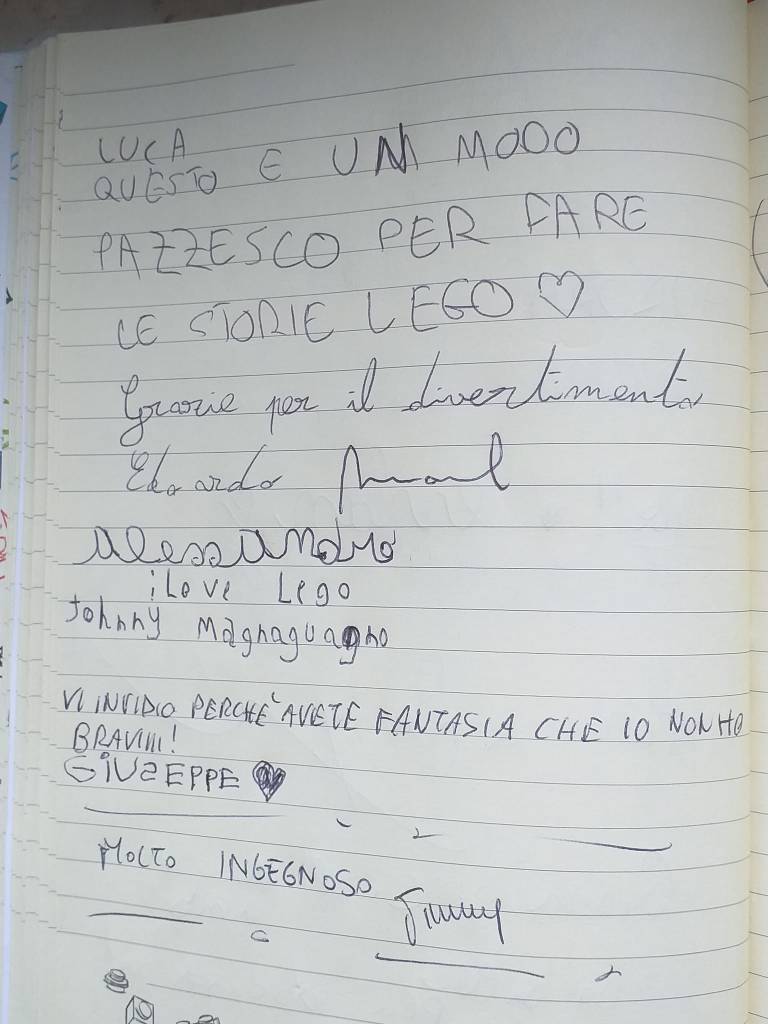 LUCA
QUESTO E UN MODO
PAZZESCO PER FARE
LE STORIE LEGO ♡
Grazie per il divertimento
Edoardo
Alessandro
i Love Lego
Johnny Magnaguagno
VI INVIDIO PERCHÈ AVETE FANTASIA CHE IO NON HO
BRAVIIII!
GIUSEPPE ♥
MOLTO INGEGNOSO
Jimmy